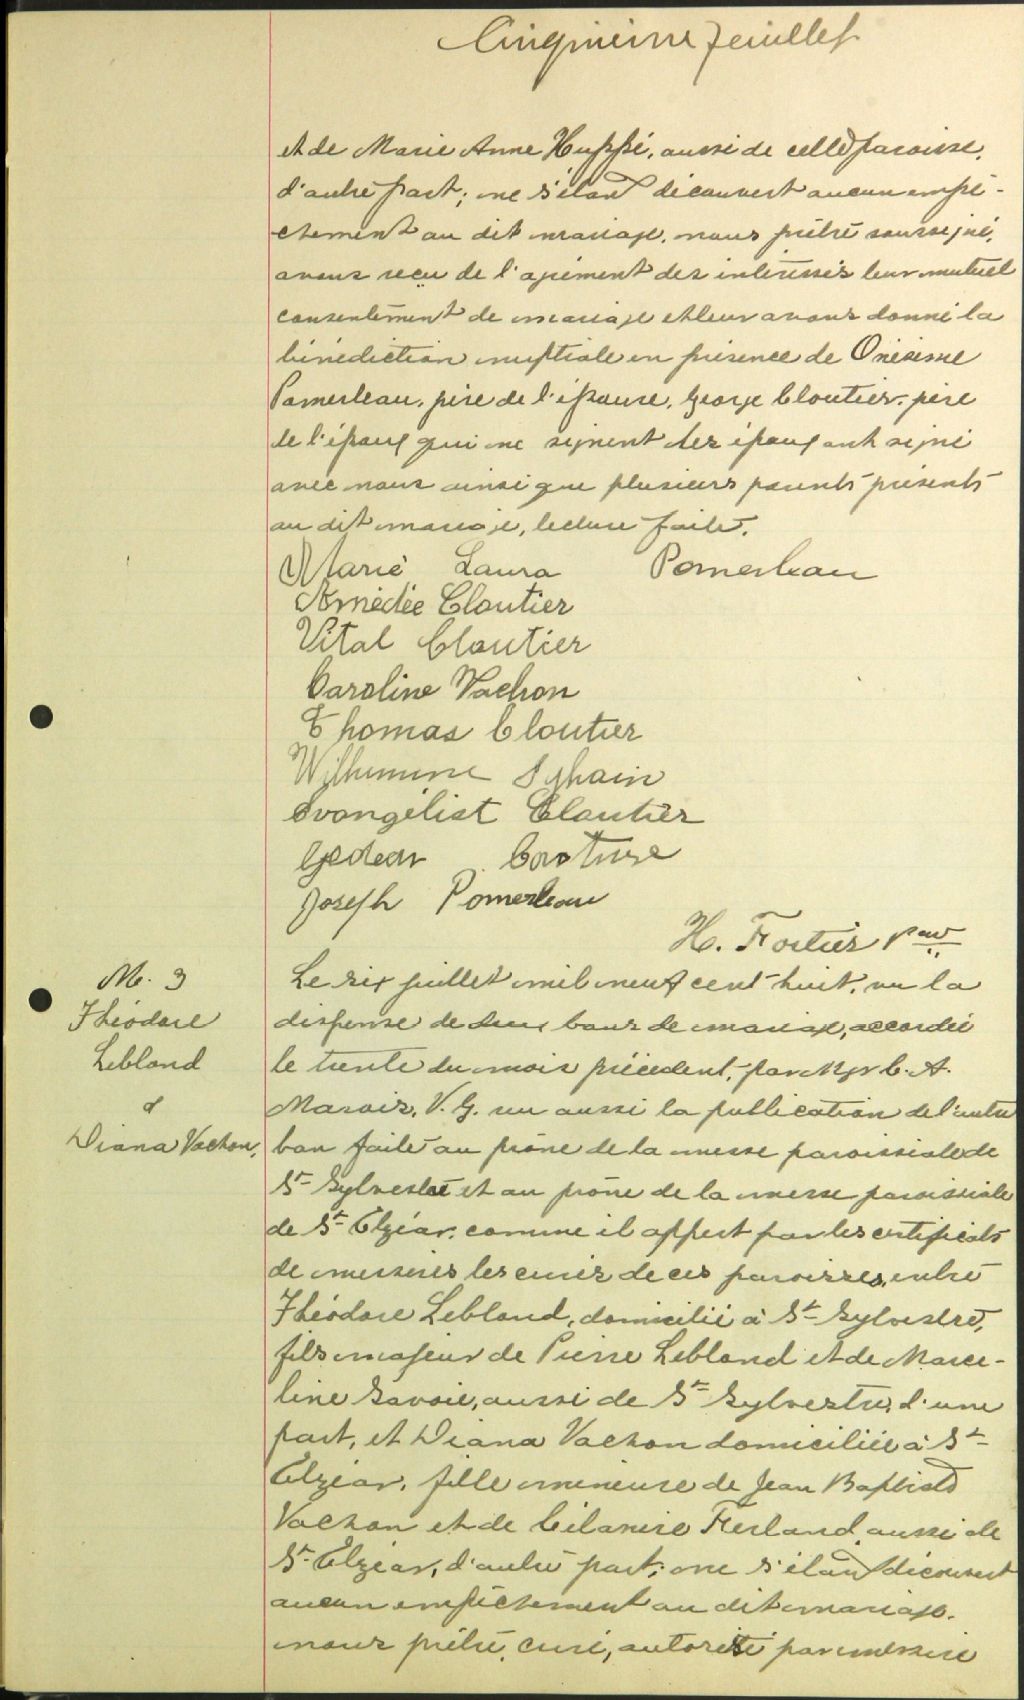 Cinquième feuillet
et de Marie Anne Huppé, aussi de cette paroisse,
d'autre part; ne s'étant découvert aucun empê-
chement au dit mariage, nous prêtre soussigné,
avons reçu de l'agrément des intéressés leur mutuel
consentement de mariage et leur avons donné la
bénédiction nuptiale en présence de Onésime
Pomerleau, père de l'épouse, George Cloutier, père
de l'époux qui ne signent les époux ont signé
avec nous ainsi que plusieurs parents présents
au dit mariage, lecture faite.
Marie Laura Pomerleau
Amédée Cloutier
Vital Cloutier
Caroline Vachon
Thomas Cloutier
Wilhemine Sylvain
Evangélist Cloutier
Gedeon Couture
Joseph Pomerleau
H. Fortier
M. 3
Théodore
Leblond
&
Diana Vachon,
Le six juillet mil neuf cent huit, vu la
dispense de deux bans de mariage, accordée
le trente du mois précédent, par Mgr C. A.
Marois, V. G. vu aussi la publication de l'autre
ban faite au prône de la messe paroissiale de
St Sylvestre et au prône de la messe paroissiale
de St Elzéar, comme il appert par les certificats
de messires les curés de ces paroisses, entre
Théodore Leblond, domicilié à St Sylvestre,
fils majeur de Pierre Leblond et de Marce-
line Savoie, aussi de St Sylvestre, d'une
part, et Diana Vachon domiciliée à St
Elzéar, fille mineure de Jean Baptiste
Vachon et de Célanire Ferland, aussi de
St Elzéar, d'autre part; ne s'étant découvert
aucun empêchement au dit mariage.
nous prêtre, curé, autorisé par messire